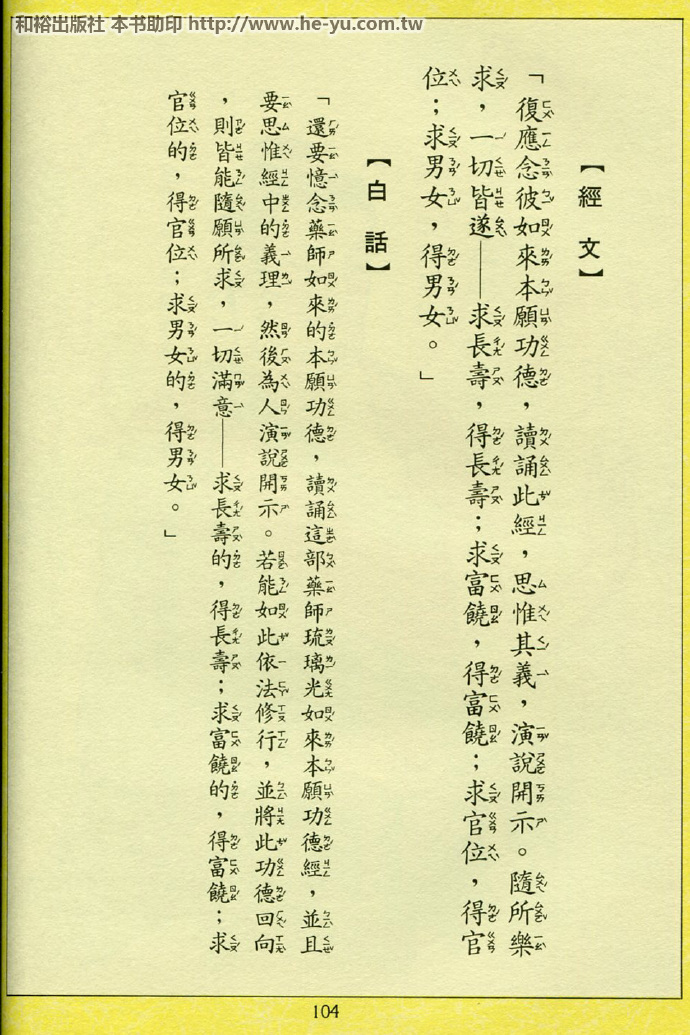 和裕出版社 本书助印 http://www.he-yu.com.tw
【經文】
「復應念彼如來本願功德，讀誦此經，思惟其義，演說開示。隨所樂
求，一切皆遂——求長壽，得長壽；求富饒，得富饒；求官位，得官
位；求男女，得男女。」
【白話】
「還要憶念藥師如來的本願功德，讀誦這部藥師琉璃光如來本願功德經，並且
要思惟經中的義理，然後為人演說開示。若能如此依法修行，並將此功德回向
，則皆能隨願所求，一切滿意——求長壽的，得長壽；求富饒的，得富饒；求
官位的，得官位；求男女的，得男女。」
104